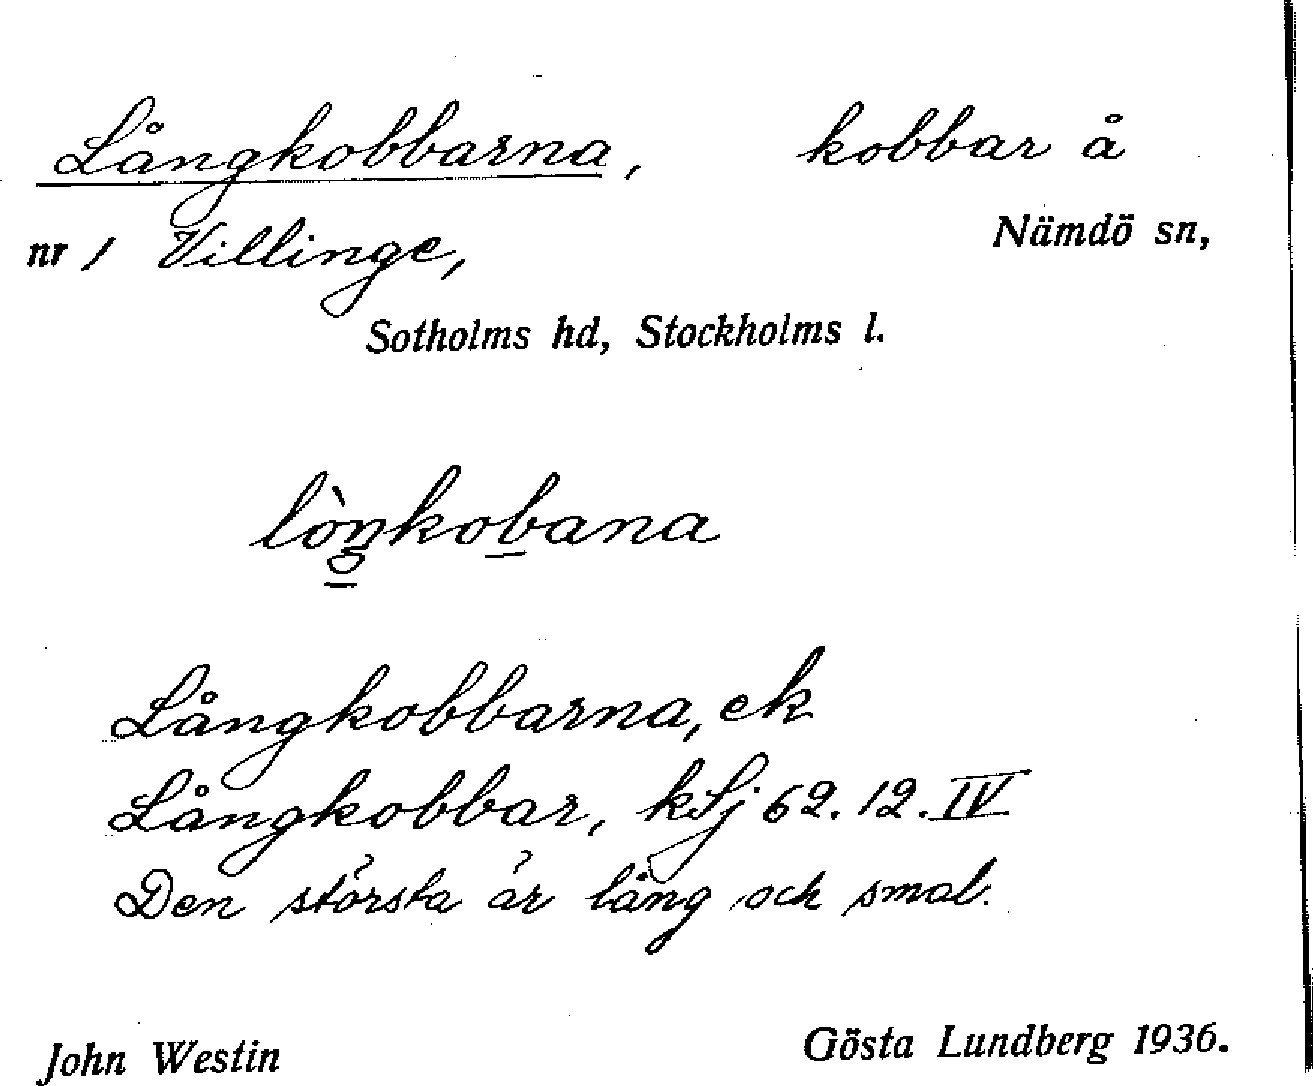 Långkobbarna, kobbar å
nr 1 Villinge, Nämdö sn,
Sotholms hd, Stockholms l.
lòn̲kob̲ana
Långkobbarna, ek
Långkobbar, kSj 62.12.IV
Den största är lång och smal.
John Westin Gösta Lundberg 1936.